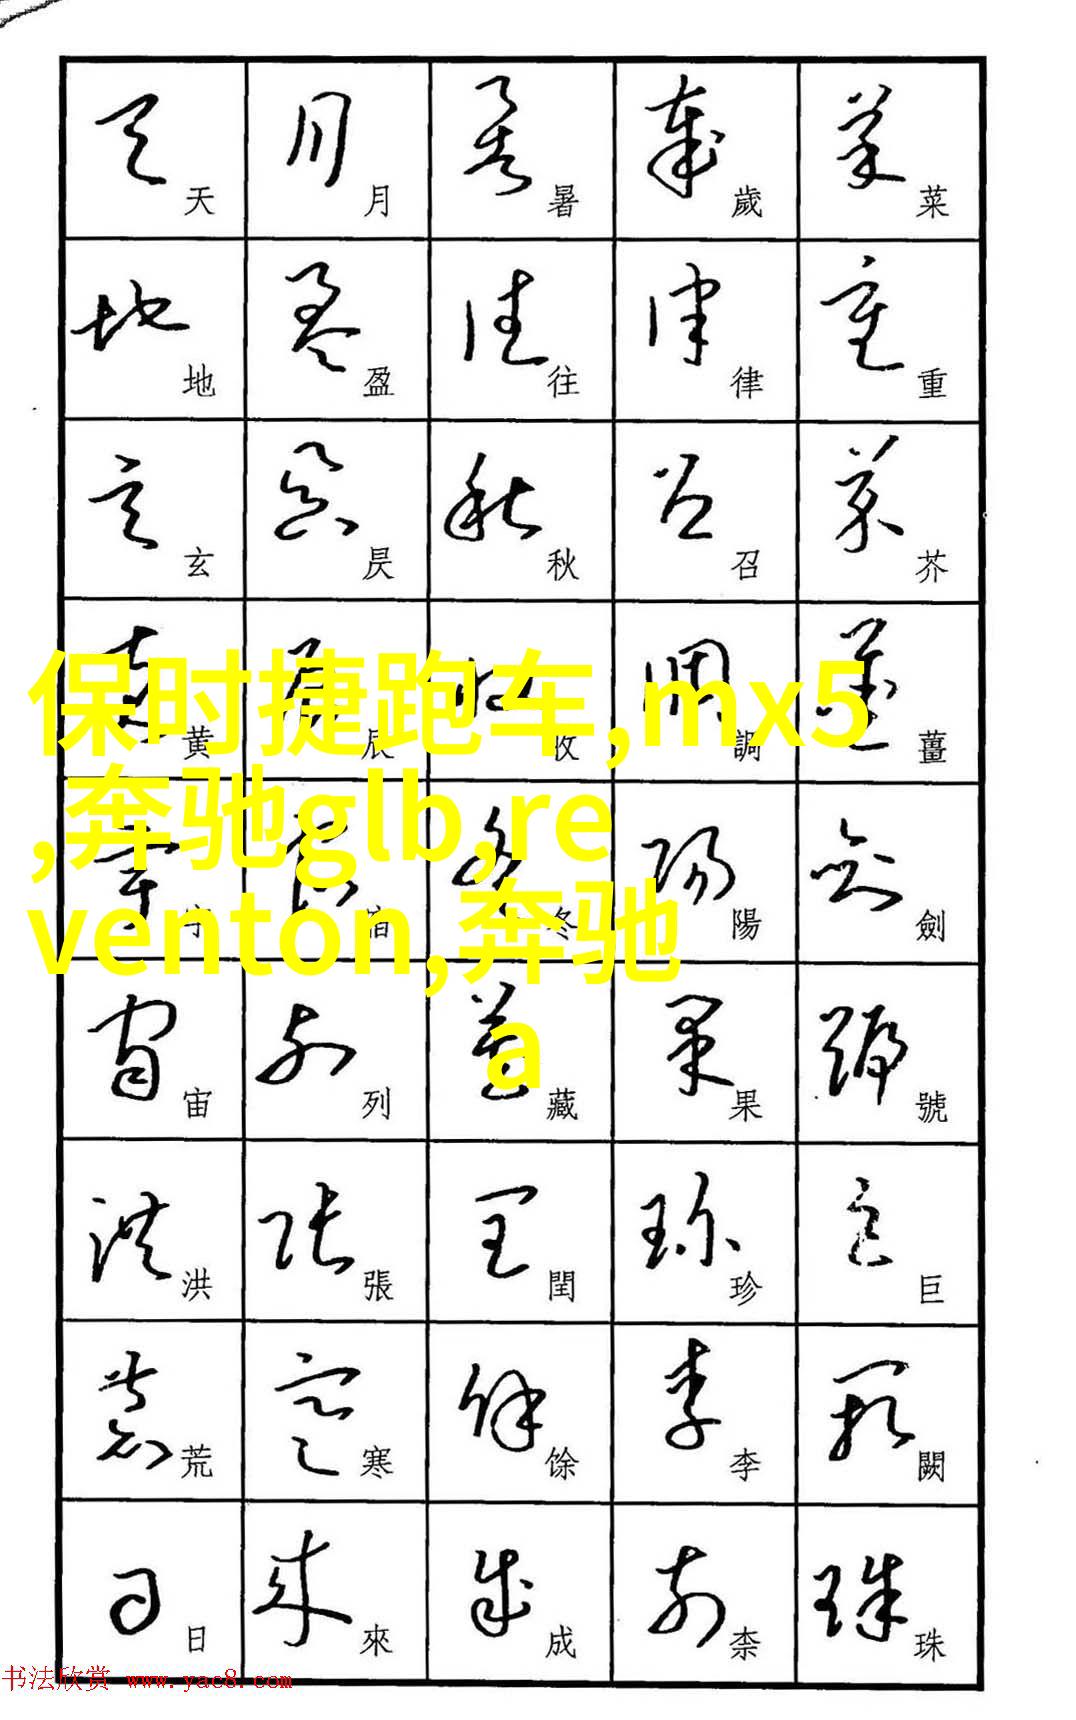 天 月 暑 歲 菜
地 盈 往 律 重
玄 昃 秋 召 芥
黄 辰 收 調 薑
保时捷跑车,mx5
,奔驰glb,re
宇 宿 冬 陽 劍
venton,奔驰
a
宙 列 藏 果 號
洪 張 閏 珍 巨
荒 寒 馀 李 闕
日 來 成 柰 珠
书法欣赏 www.yac8.com